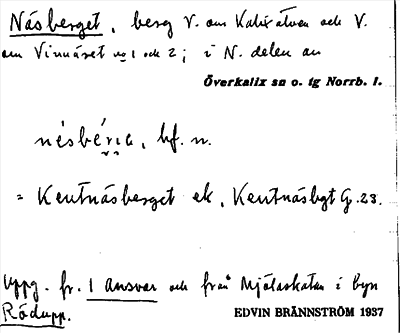 Näsberget, berg V. om Kalixälven och V.
om Vinnäset no 1 och 2; i N. delen av
Överkalix sn o. tg Norrb. l.
bf. n.
= Keutnäsberget ek, Keutnäsbgt G. 23.
Uppg. fr. 1 Ansvar och från Mjölaskatan i byn
Rödupp.
EDVIN BRÄNNSTRÖM 1937